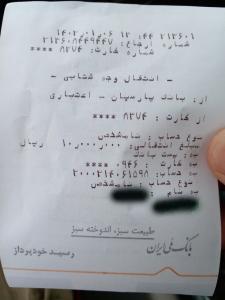 ۱۴۰۲/۰۱/۰۶ ۱۲:۴۴ ۲۱۳۶۰۱
شماره ارجاع: ۲۱۳۶۰۸۴۴۹۴۴۷
شماره کارت: ۸۲۷۴ ****
- انتقال وجه شتابی -
از: بانک پارسیان - اعتباری
از کارت: ۸۲۷۴ ****
نوع حساب: نامشخص
مبلغ انتقالی: ۱۰,۰۰۰,۰۰۰ ریال
به: پست بانک
به کارت: ۰۹۴۶ ****
به حساب: ۲۰۰۰۲۱۴۰۶۱۵۹۸
نوع حساب: نامشخص
به نام:
طبیعت سبز، اندوخته سبز
بانک ملی ایران
رسید خودپرداز